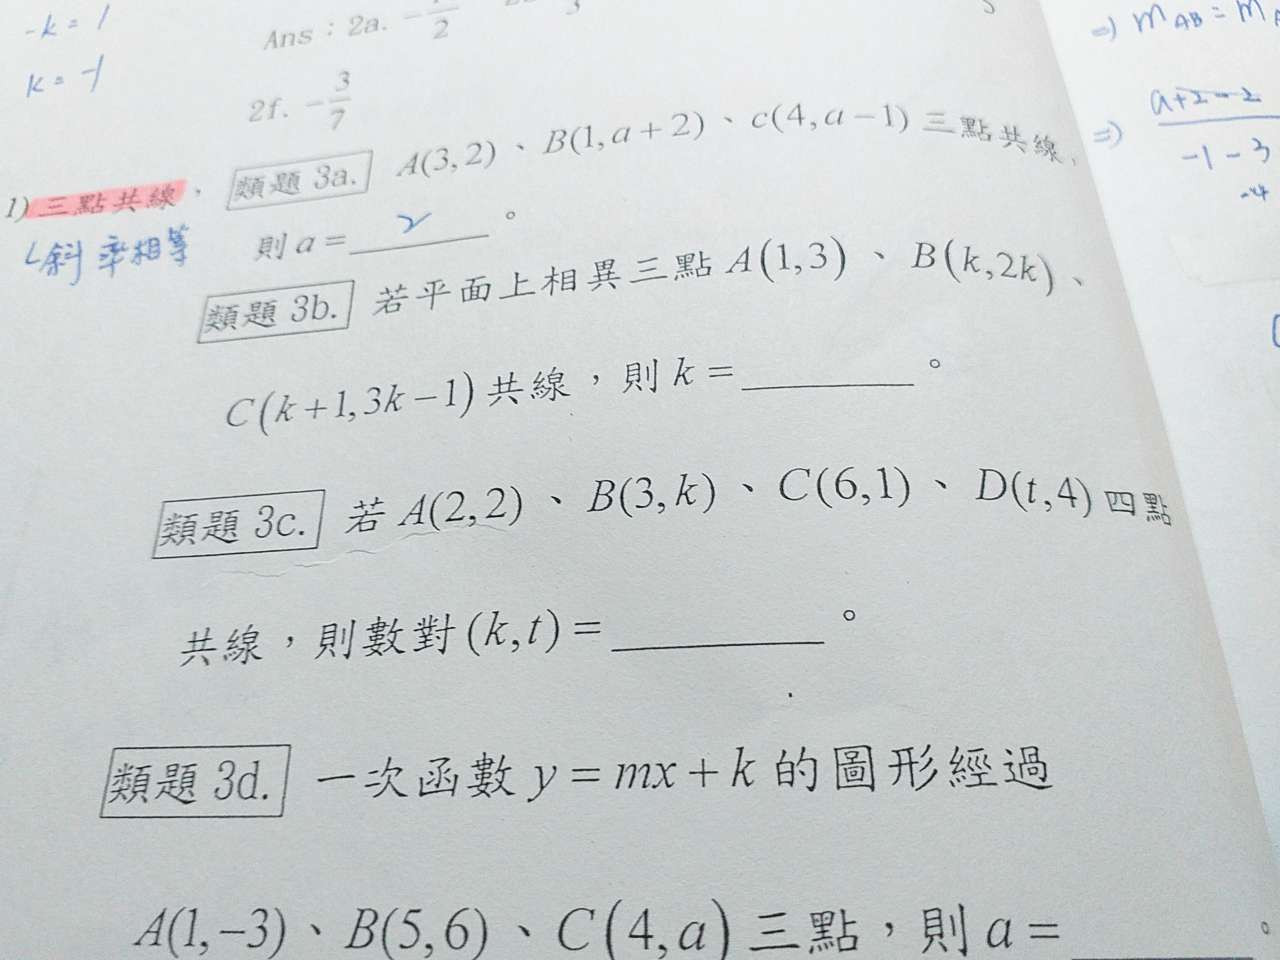 -k = 1
k = -1
Ans：2a.
2f. -3/7
1) 三點共線，
└斜率相等
類題 3a. A(3,2)、B(1,a+2)、c(4,a-1) 三點共線，
則 a = 2 。
類題 3b. 若平面上相異三點 A(1,3)、B(k,2k)、
C(k+1,3k-1) 共線，則 k = ______。
類題 3c. 若 A(2,2)、B(3,k)、C(6,1)、D(t,4) 四點
共線，則數對 (k,t) = ______。
類題 3d. 一次函數 y = mx + k 的圖形經過
A(1,-3)、B(5,6)、C(4,a) 三點，則 a = ______。
⇒) m AB = m
⇒) a+2-2
-1-3
-4